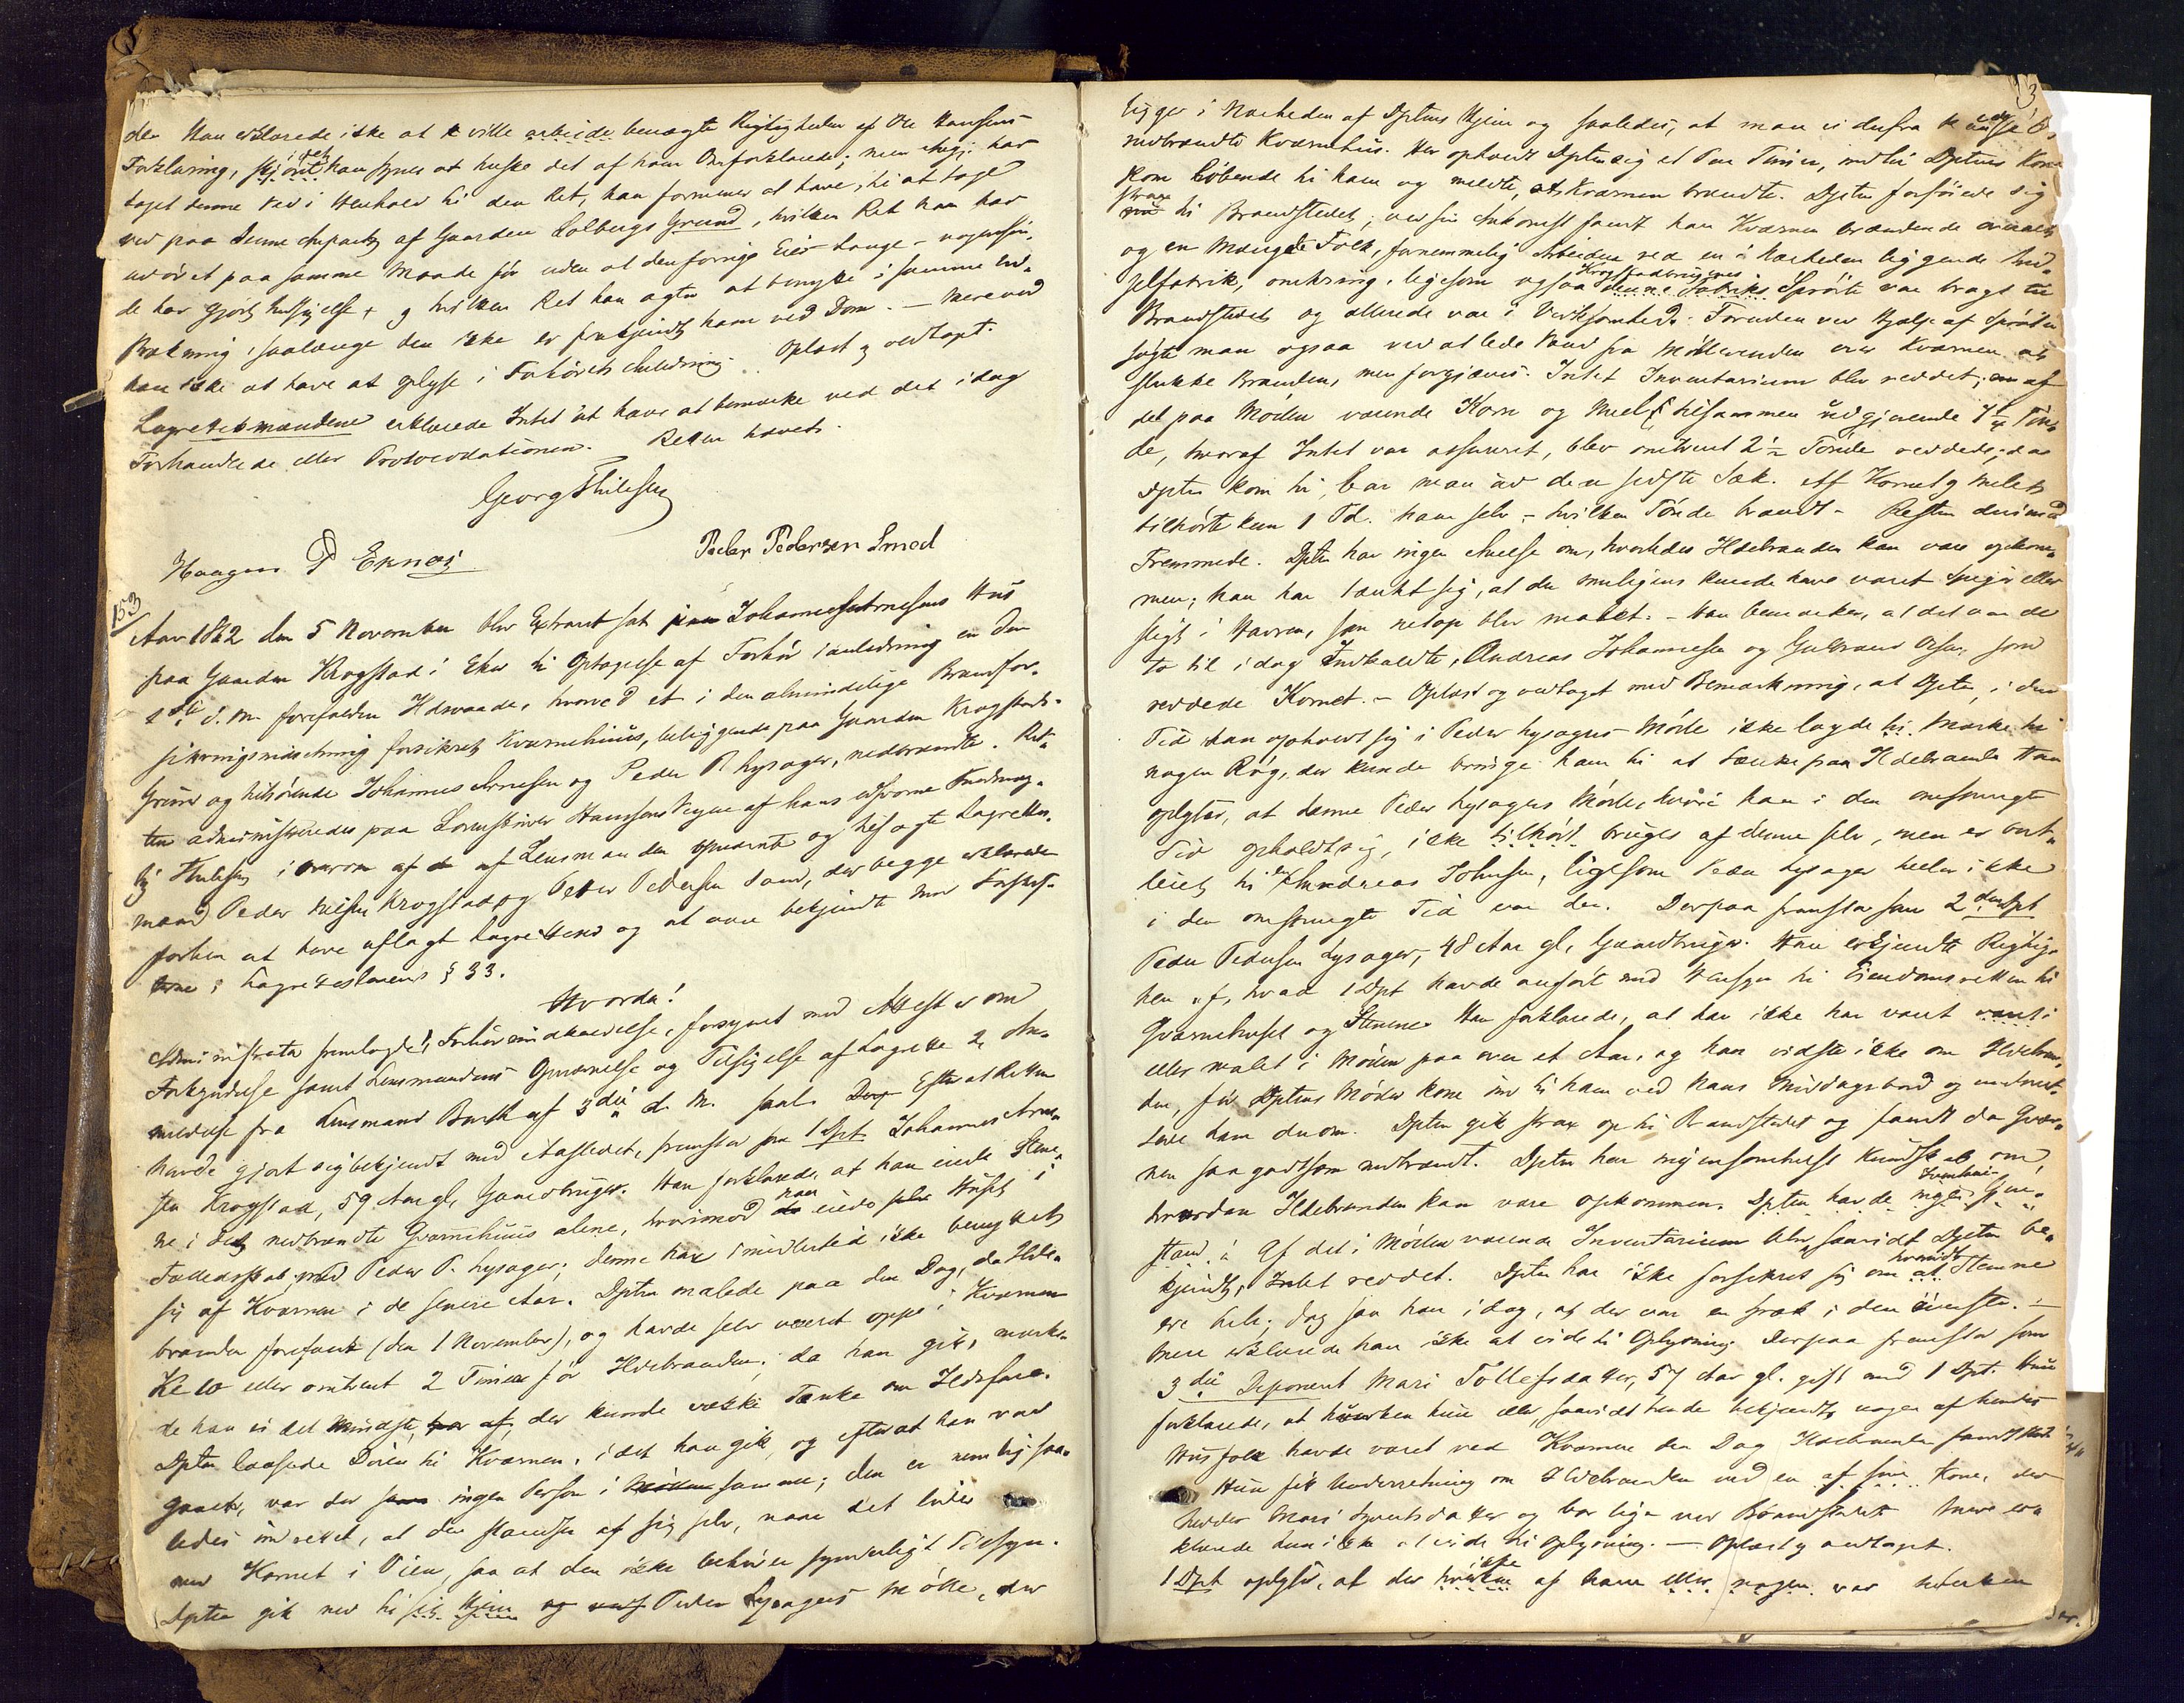 den Han erklærede ikke at ville arbeide benægte Rigtigheden af Ole Hansens
Forklaring, skjönt han synes at huske det af ham Omforklarede; men har
taget denne Ved i Henhold til den Ret, han formener at have, til at tage
ved paa denne Anpart af Gaarden Solbergs Grund, hvilken Ret han har
udövet paa samme Maade för uden at den forrige Eier Lange
de har gjort Indsigelse og hvilken Ret han agter at benytte i samme
saalænge den ikke er frakjendt ham ved Dom. — Mere ved
han ikke at have at oplyse i Forhörets Anledning. Oplæst og vedtaget.
Lagrettesmændene erklærede Intet at have at bemærke ved det idag
Forhandlede eller Protocollationen. Retten hævet.
Georg Thilesen
Haagen P Eknæs
Peder Pedersen Smed
153
Aar 1862 den 5 November blev Extraret sat paa Johannes Arnesens Hus
paa Gaarden Krogstad i Eker til Optagelse af Forhör i anledning en den
1ste d. M. forefalden Ildsvaade, hvorved et i den almindelige Brandfor-
sikringsindretning forsikret Kværnehuus, beliggende paa Gaarden Krogstads
Grund og tilhörende Johannes Arnesen og Peder P. Lysager, nedbrændte. Ret-
ten administreredes paa Sorenskriver Hansens Vegne af hans edsvorne Fuldmæg-
tig Thilesen i overvær af af Lensmanden opnævnte og tilsagte Lagrettes-
mænd Peder Nilsen Krogstad og Peder Pedersen Sand, der begge erklærede
forhen at have aflagt Lagretteseed og at være bekjendt med Forskrif-
terne i Lagretteslovens § 33.
Hvorda!
Administrator fremlagde Forhörsindkaldelse, forsynet med Attest om
Forkyndelse samt Lensmandens Opnævnelse og Tilsigelse af Lagrette 2 An-
meldelse fra Lensmand Barth af 3die d. M. saal. Efter at Retten
havde gjort sig bekjendt med Aastedet, fremstod som 1 Dpt. Johannes Arne-
sen Krogstad, 59 Aar gl. Gaardbruger. Han forklarede, at han eiede Stene-
ne i det nedbrændte Qværnehuus alene, hvorimod han eiede Huset i
Fælledsskab med Peder P. Lysager; denne har imidlertid ikke benyttet
sig af Kværnen i de senere Aar. Dptn malede paa den Dag, da Ilde-
branden forefaldt (den 1 November), og havde selv været oppe i Kværnen
Kl 10 eller omtrent 2 Timer för Ildebranden; da han gik, mærke-
de han ei det mindste, der kunde vække Tanke om Ildsfare.
Dptn laasede Dören til Kværnen, idet han gik, og efterat han var
gaaet, var der ingen Person i samme; den er nemlig saa-
ledes indrettet, at den standser af sig selv, naar det lider
med Kornet i Teien, saa at den ikke behöver synderligt Tilsyn.
Dptn gik ned til sit Hjem Peder Lysagers Mölle, der
ligger i Nærheden af Dptns Hjem og saaledes, at man ei derfra kan se det
nedbrændte Kværnehus. Her opholdt Dptn sig et Par Timer, indtil Dptns Kone
kom löbende til ham og meldte, at Kværnen brændte. Dptn forföiede sig
strax til Brandstedet; ved sin Ankomst fandt han Kværnen brændende
og en Mængde Folk, fornemmelig Arbeidere ved en i Nærheden liggende
selfabrik, omkring, ligesom ogsaa denne Fabriks Spröite var bragt til
Brandstedet og allerede var i Virksomhed. Foruden ved Hjælp af Spröiten
sögte man ogsaa ved at lede Vand fra Möllerenden over Kværnen at
slukke Branden, men forgjæves. Intet Inventarium blev reddet; af
det paa Möllen værende Korn og Meel tilsammen udgjörende 7 Tön-
de, hvoraf Intet var assureret, blev omtrent 2½ Tönde reddet; da
Dptn kom til, bar man ud den sidste Sæk. Af Kornet og Melet
tilhörte kun 1 Td. ham selv — hvilken Tönde brændt — Resten derimod
Fremmede. Dptn har ingen Anelse om, hvorledes Ildebranden kan være opkom-
men; han har tænkt sig, at der muligens kunde have været Spiger eller
sligt i Havren, som netop blev malet. — Han bemærker, at det var de
to til idag Indkaldte, Andreas Johannesen og Gulbrand Olsen, som
reddede Kornet. — Oplæst og vedtaget med Bemærkning, at Dptn i den
Tid han opholdt sig i Peder Lysagers Mölle ikke lagde Mærke til
nogen Rög, der kunde bringe ham til at tænke paa Ildebrand. Han
oplyser, at denne Peder Lysagers Mölle, hvori han i den omspurgte
Tid opholdt sig, ikke bruges af denne selv, men er bort-
leiet til en Andreas Johnsen, ligesom Peder Lysager heller ikke
i den omspurgte Tid var der. Derpaa fremstod som 2den Dpt
Peder Pedersen Lysager, 48 Aar gl., Gaardbruger. Han erkjendte Rigtig-
heden af, hvad 1 Dpt havde anfört med Hensyn til Eiendomsretten til
Qværnehuset og Stenene. Han forklarede, at han ikke har været
eller malet i Möllen paa over et Aar, og han vidste ikke om Ildebran-
den, för Dptns Moder kom ind til ham ved hans Middagsbord og underret-
tede ham derom. Dptn gik strax op til Brandstedet og fandt da Qvær-
nen saa godtsom nedbrændt. Dptn har ingensomhelst Kundskab om,
hvordan Ildebranden kan være opkommen. Dptn havde ingen Gjen-
stand. Af det i Möllen værende Inventarium blev, saavidt Dptn be-
kjendt, Intet reddet. Dptn har ikke forsikret sig om hvorvidt Stenene
ere hele; dog saa han idag, at der var en Sræk i den överste. —
Mere erklærede han ikke at vide til Oplysning. Derpaa fremstod som
3die Deponent Mari Tollefsdatter, 57 Aar gl. gift med 1 Dpt. Hun
forklarede, at hverken hun eller, saavidt hende bekjendt, nogen af hendes
Husfolk havde været ved Kværnen den Dag Ildebranden fandt Sted.
Hun fik Underretning om Ildebranden ved en Kone, der
hedder Mari Syvertsdatter og bor lige ved Brandstedet. Mere er-
klærede hun ikke at vide til Oplysning. — Oplæst og vedtaget.
1 Dpt oplyste, at der ikke af ham eller nogen var hverken